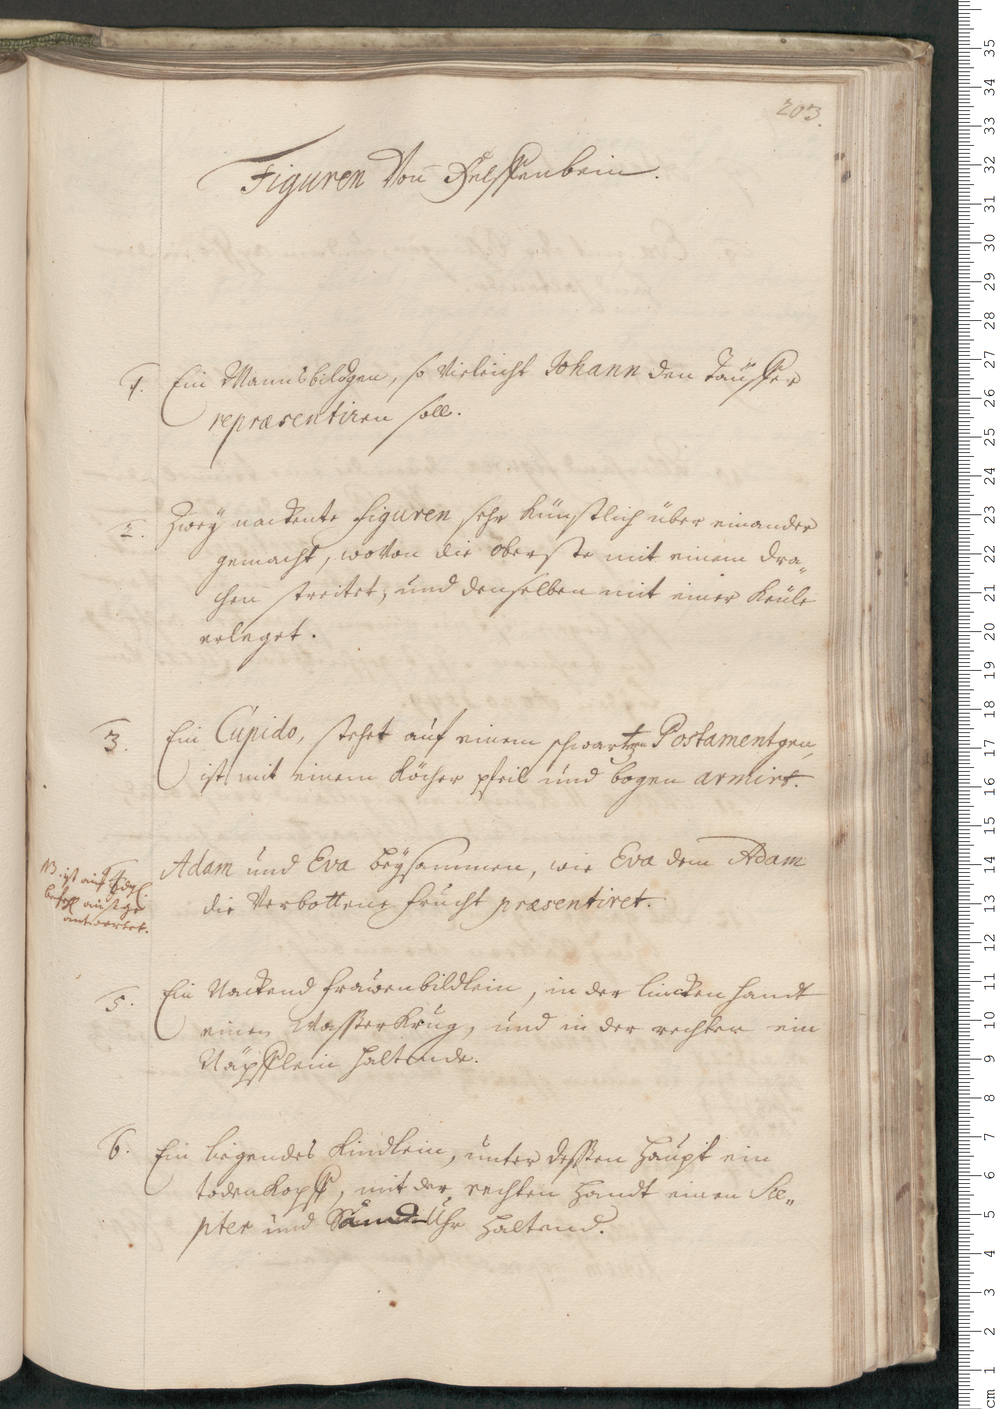 203.
Figuren Von Helffenbein.
1. Ein Mannsbildgen, so Vieleicht Johann den Täuffer
repræsentiren soll.
2. Zwey nackente Figuren sehr Künstlich über einander
gemacht, wovon die oberste mit einem dra„
chen streitet, und denselben mit einer Keule
erleget.
3. Ein Cupido, stehet auf einem schwartzen Postamentgen,
ist mit einem Köcher pfeil und bogen armirt.
4. Adam und Eva beÿsammen, wie Eva dem Adam
die Verbottene frucht præsentiret.
NB. ist auf
befehl außge
antwortet.
5. Ein Nackend frauenbildlein, in der lincken handt
einen Wasser Krug, und in der rechten ein
Näpfflein haltende.
6. Ein ligendes Kindlein, unter dessen Haupt ein
todenkopff, mit der rechten Handt einen Sce„
pter und Sand-Uhr haltend.